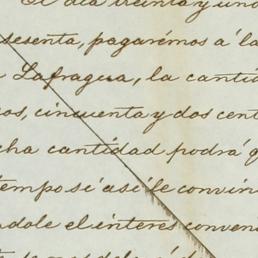 El día treinta y uno
sesenta, pagarémos á la
Lafragua, la cantid
os, cincuenta y dos cent
cha cantidad podrá
tempo si asi le convin
ndole el interes conven